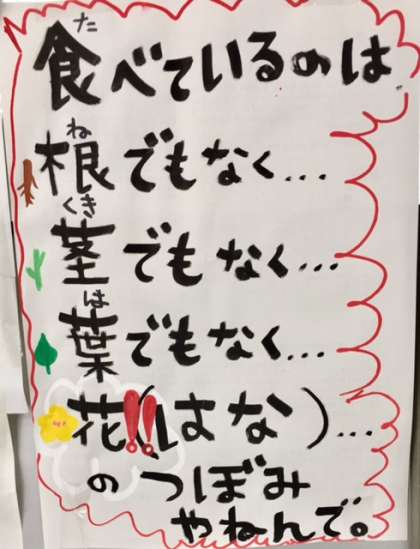 食べているのは
根でもなく...
茎でもなく...
葉でもなく...
花!!(はな)...
のつぼみ
やねんで。